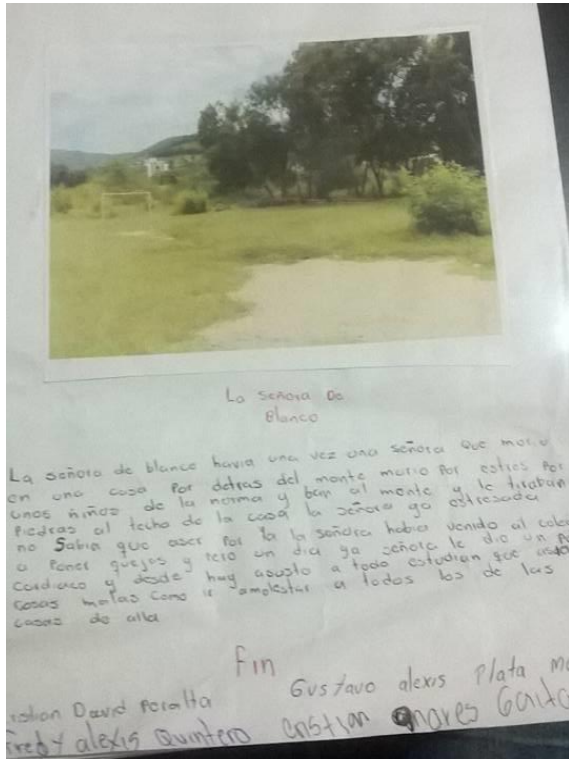 La señora De
Blanco
La señora de blanco havia una vez una señora que murio
en una casa por detras del monte murio por estres por
unos niños de la norma y ban al monte y le tiraban
piedras al techo de la casa la señora ya estresada
no sabia que aser por la la señora habia venido al cole
a poner quejas y pero un dia ya señora le dio un
cardiaco y desde hay asusto a todo estudian que
cosas malas como ir amolestar a todos los de las
casas de alla
Fin
istian David Peralta Gustavo alexis Plata
Fredy alexis Quintero cristian